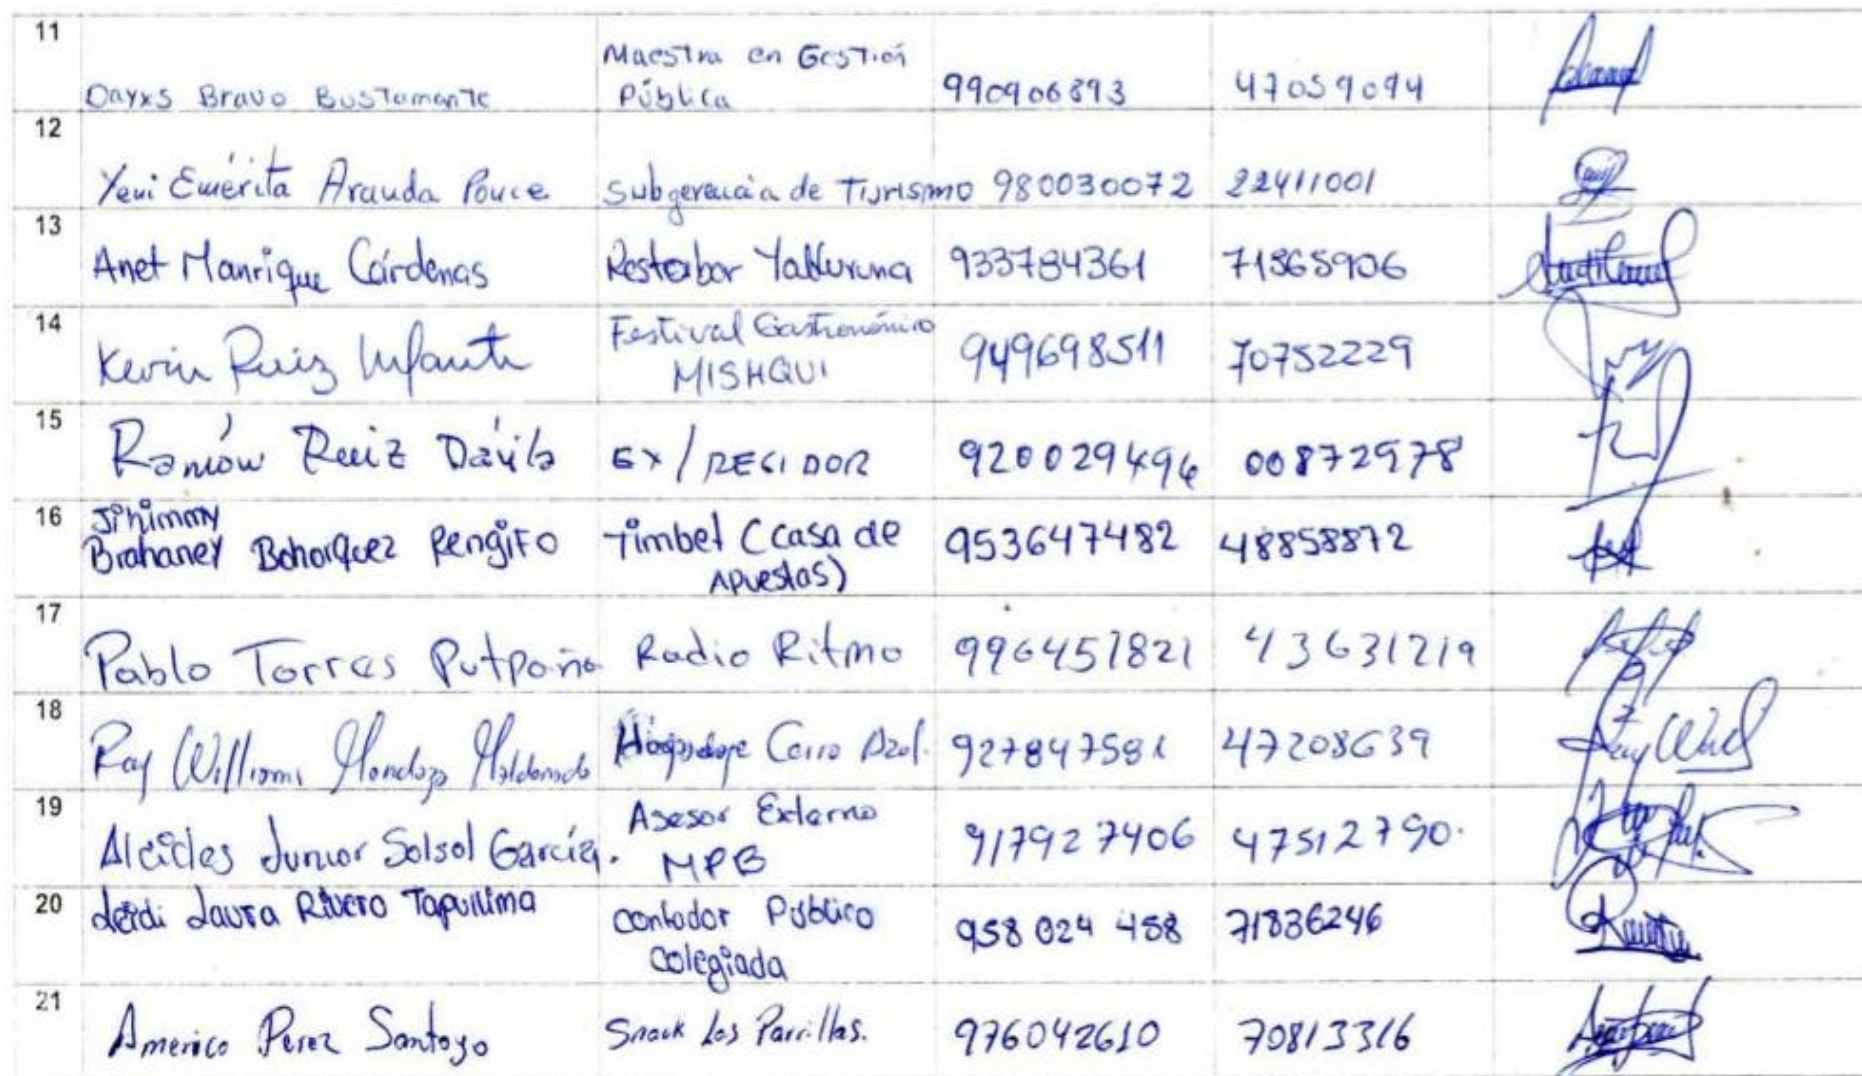 11 Dayxs Bravo Bustamante Maestra en Gestión Pública 990906893 47059094
12 Yeni Emérita Aranda Ponce Subgerencia de Turismo 980030072 22411001
13 Anet Manrique Cárdenas Restobar Yakuruna 933784361 71365906
14 Kevin Ruiz Infante Festival Gastronómico MISHQUI 949698511 70752229
15 Ramón Ruiz Dávila EX/REGIDOR 920029496 00872978
16 Jihimmy Brahaney Bohorquez Rengifo Timbet (casa de apuestas) 953647482 48858872
17 Pablo Torres Putpaña Radio Ritmo 996457821 43631219
18 Ray Williams Mendoza Maldonado Hospedaje Cerro Azul. 927847581 47208639
19 Alcides Junior Solsol García. Asesor Externo MPB 917927406 47512790.
20 Leidi Laura Rivero Tapullima Contador Público Colegiada 958 024 458 71836246
21 Americo Perez Santoyo Snack Los Parrillas. 976042610 70813316